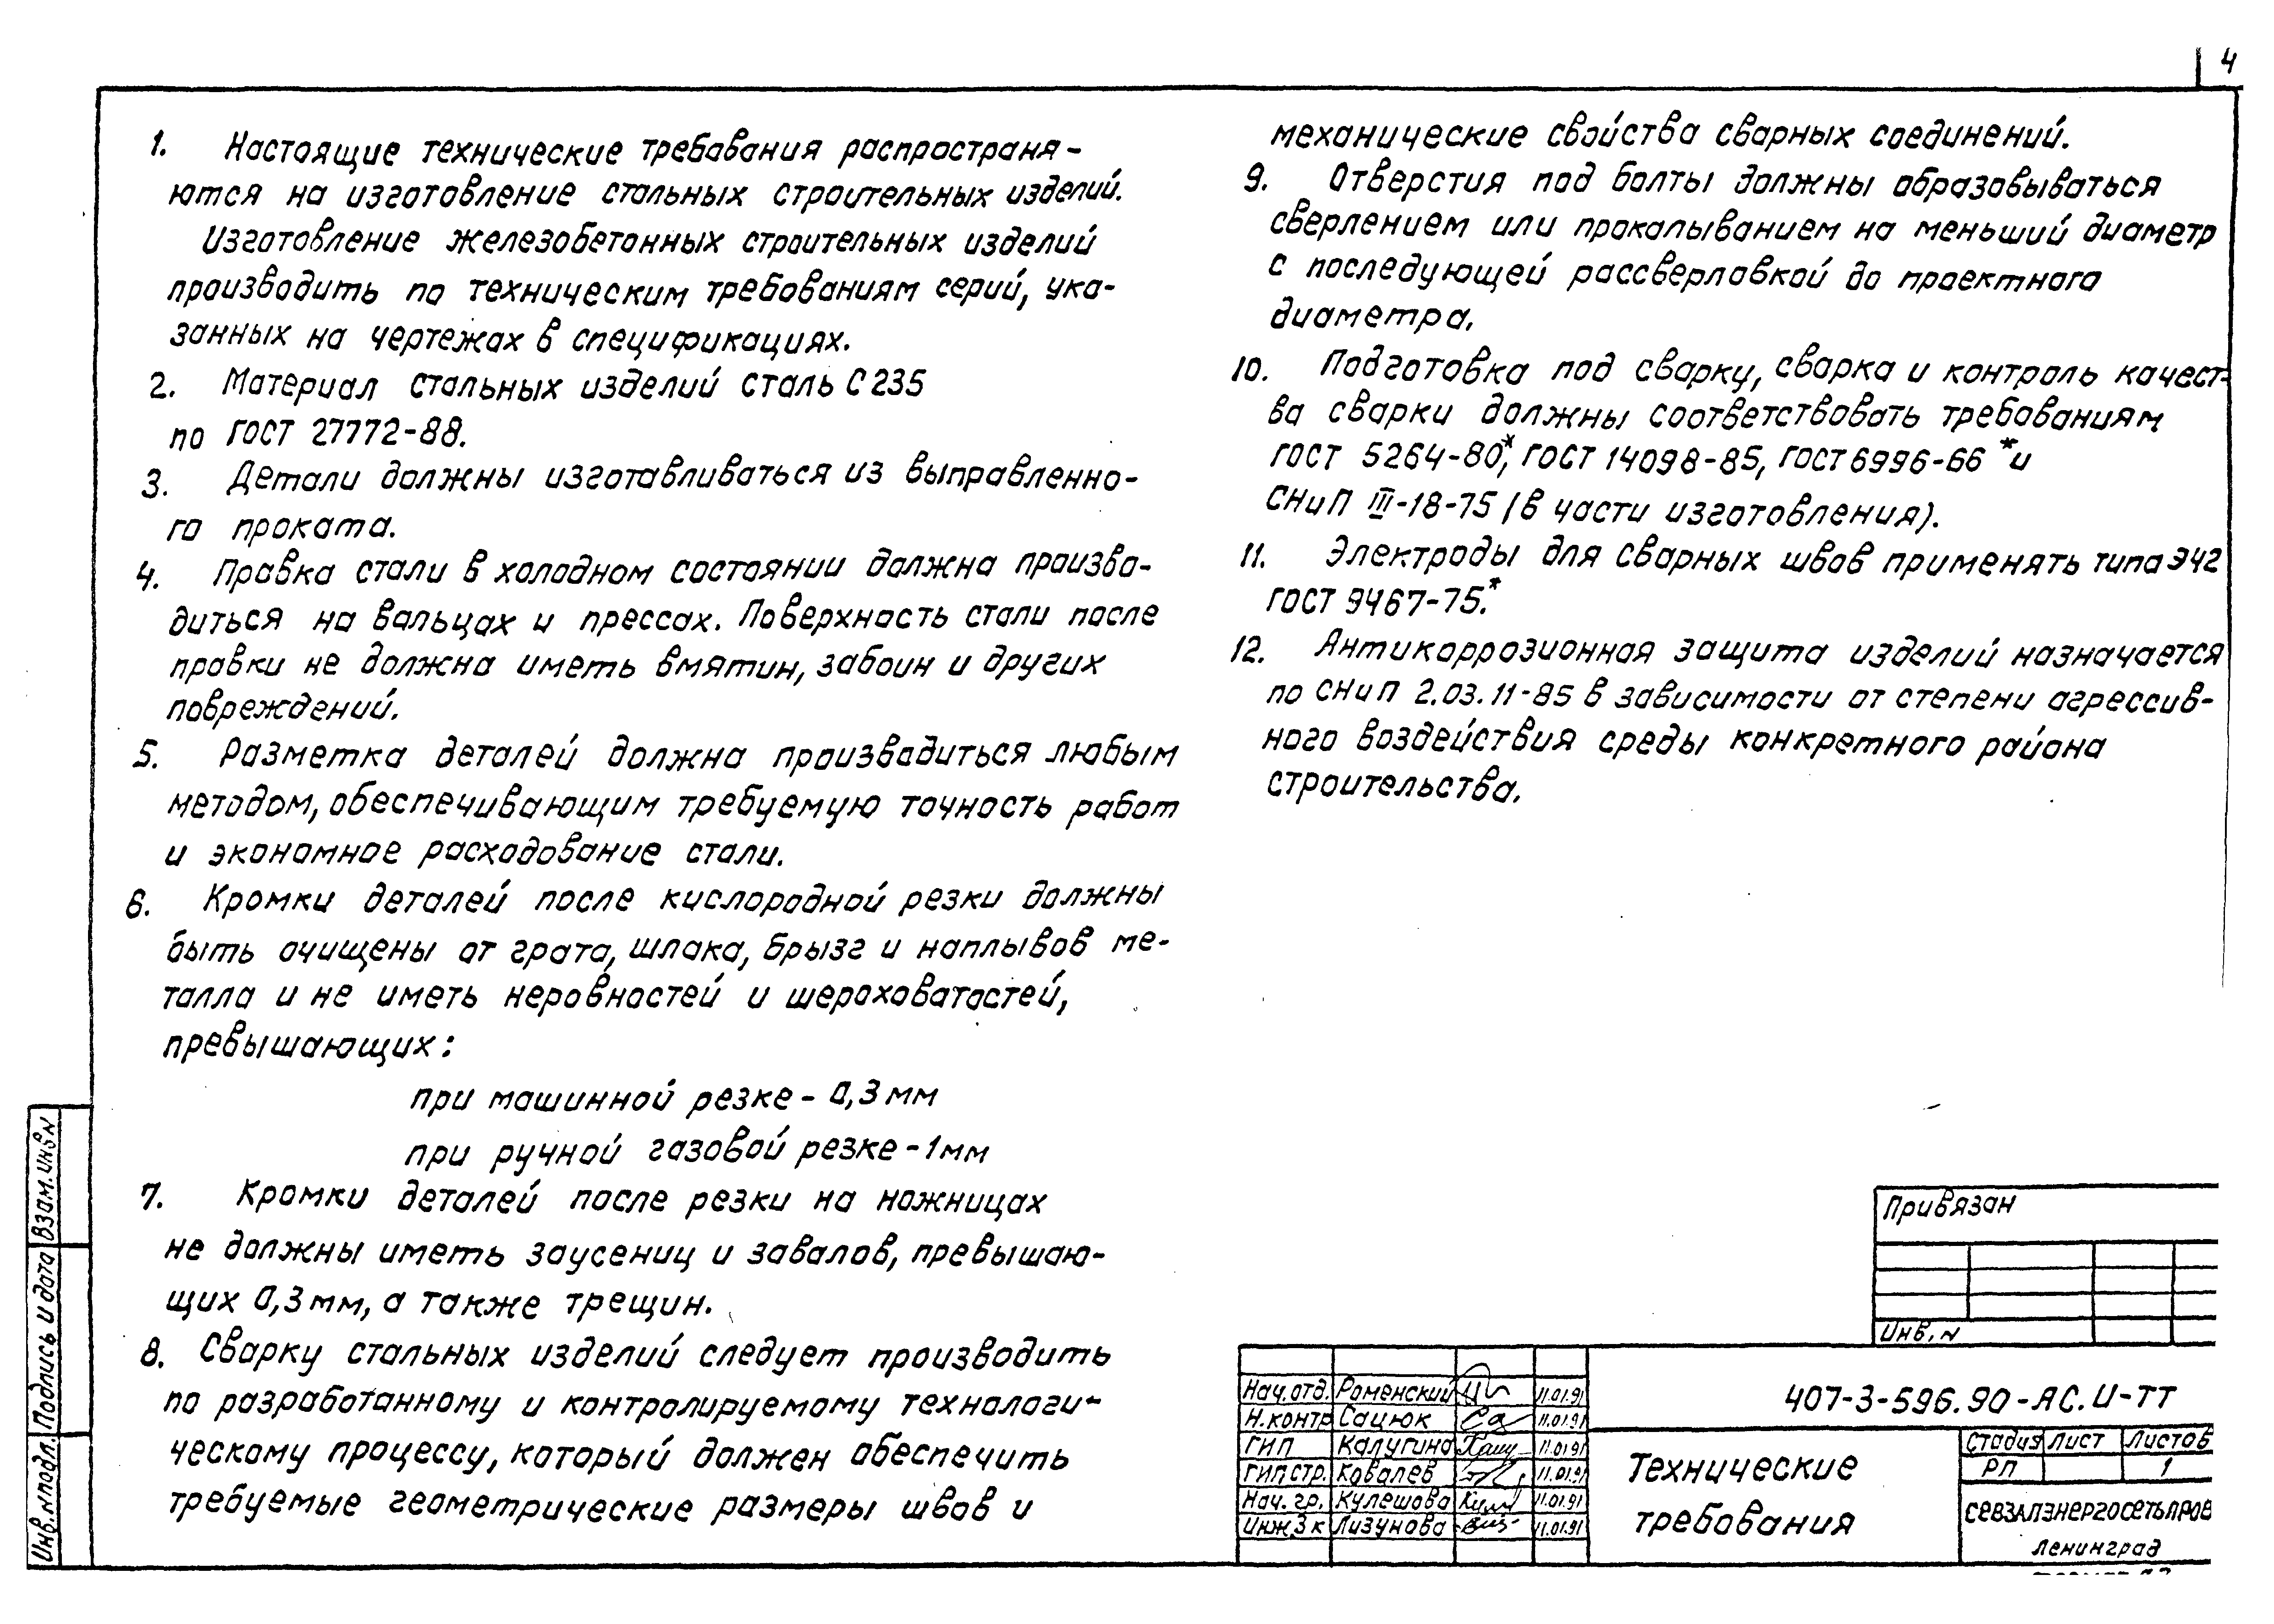 4
1. Настоящие технические требования распространя-
ются на изготовление стальных строительных изделий.
Изготовление железобетонных строительных изделий
производить по техническим требованиям серий, ука-
занных на чертежах в спецификациях.
2. Материал стальных изделий сталь С 235
по ГОСТ 27772-88.
3. Детали должны изготавливаться из выправленно-
го проката.
4. Правка стали в холодном состоянии должна произво-
диться на вальцах и прессах. Поверхность стали после
правки не должна иметь вмятин, забоин и других
повреждений.
5. Разметка деталей должна производиться любым
методом, обеспечивающим требуемую точность работ
и экономное расходование стали.
6. Кромки деталей после кислородной резки должны
быть очищены от грата, шлака, брызг и наплывов ме-
талла и не иметь неровностей и шероховатостей,
превышающих:
при машинной резке - 0,3 мм
при ручной газовой резке - 1 мм
7. Кромки деталей после резки на ножницах
не должны иметь заусениц и завалов, превышаю-
щих 0,3 мм, а также трещин.
8. Сварку стальных изделий следует производить
по разработанному и контролируемому технологи-
ческому процессу, который должен обеспечить
требуемые геометрические размеры швов и
механические свойства сварных соединений.
9. Отверстия под болты должны образовываться
сверлением или прокалыванием на меньший диаметр
с последующей рассверловкой до проектного
диаметра.
10. Подготовка под сварку, сварка и контроль качест-
ва сварки должны соответствовать требованиям
ГОСТ 5264-80*, ГОСТ 14098-85, ГОСТ 6996-66 * и
СНиП III-18-75 (в части изготовления).
11. Электроды для сварных швов применять типа Э42
ГОСТ 9467-75.*
12. Антикоррозионная защита изделий назначается
по СНиП 2.03.11-85 в зависимости от степени агрессив-
ного воздействия среды конкретного района
строительства.
Взам. инв N
Подпись и дата
Инв. N подл.
Привязан
Инв. N
Нач. отд. Роменский 11.01.91
Н. контр Сацюк 11.01.91
ГИП Калугина 11.01.91
ГИП стр. Ковалев 11.01.91
Нач. гр. Кулешова 11.01.91
Инж. 3 к Лизунова 11.01.91
407-3-596.90-АС.И-ТТ
Технические
требования
Стадия Лист Листов
РП 1
СЕВЗАПЭНЕРГОСЕТЬПРОЕ
Ленинград